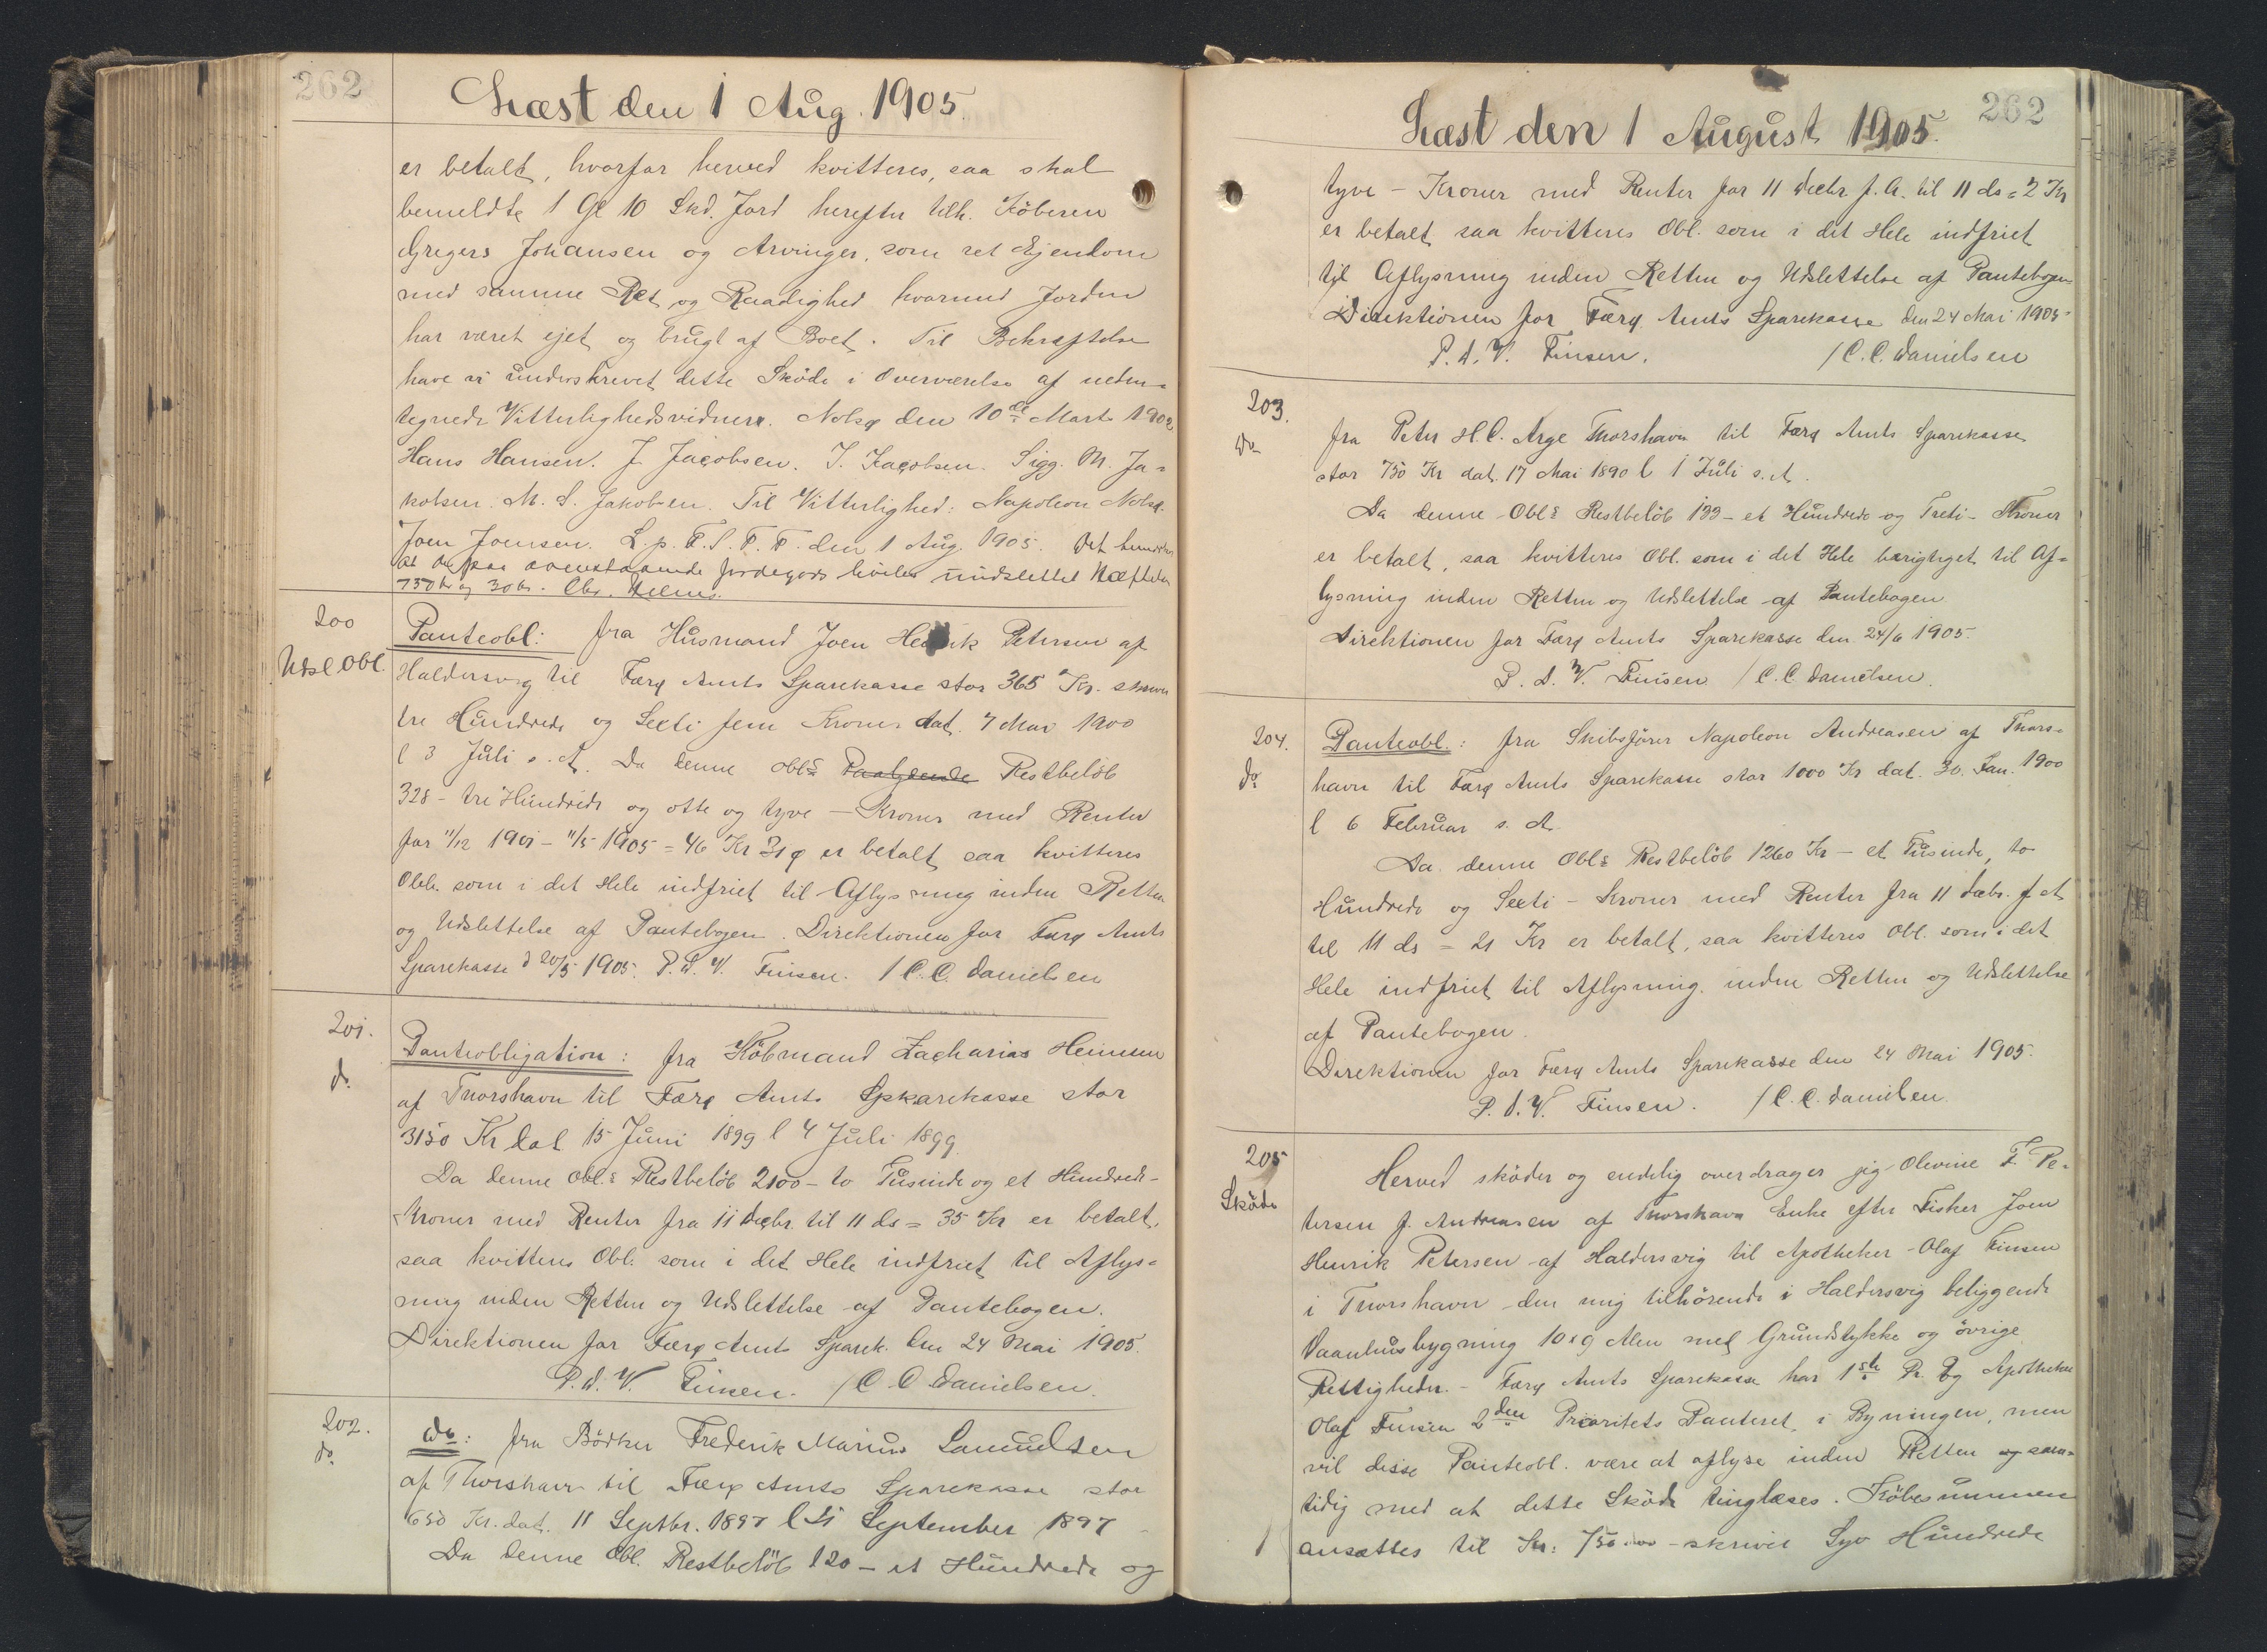 262
Læst den 1 Aug. 1905.
er betalt, hvorfor herved kvitteres, saa skal
bemeldte 1 Gl 10 Skd. Jord herefter tilh. Köberen
Gregers Johansen og Arvinger, som ret Ejendom
med samme Ret og Raadighed hvormed Jorden
har været ejet og brugt af Boet. Til Bekræftelse
have vi underskrevet dette Sköde i Overværelse af neden-
tegnede Vitterlighedsvidner. Nolsø den 10de Marts 1902
Hans Hansen. J. Jacobsen. J. Jacobsen. Sigg. M. Ja-
kobsen. M. S. Jakobsen. Til Vitterlighed: Napoleon Nolsø.
Joen Joensen. L. p. F. S. T. F. den 1 Aug. 1905. Det
at der paa ovenstaaende Jordegods udslettet Hæftelser
750 Kr og 30 Kr.
200
Udsl. Obl.
Panteobl: fra Husmand Joen Henrik Petersen af
Haldersvig til Færø Amts Sparekasse stor 365 Kr. skriver
tre Hundrede og Sexti fem Kroner dat. 7 Mai 1900
l 3 Juli s. A. Da denne Obls Paalydende Restbelöb
328 - tre Hundrede og otte og tyve - Kroner med Renter
for 11/12 1901 - 11/5 1905 = 46 Kr 31 ø er betalt saa kvitteres
Obl. som i det Hele indfriet til Aflysning inden Retten
og Udslettelse af Pantebogen. Direktionen for Færø Amts
Sparekasse d 20/5 1905. P. S. V. Finsen. / C. C. Danielsen
201.
do
Panteobligation: fra Köbmand Zacharias Heinesen
af Thorshavn til Færø Amts Spkarekasse stor
3150 Kr dat 15 Juni 1899 l 4 Juli 1899
Da denne Obl.s Restbelöb 2100 - to Tusinde og et Hundrede -
Kroner med Renter fra 11 Decbr. til 11 ds = 35 Kr er betalt,
saa kvitteres Obl. som i det Hele indfriet til Aflys-
ning inden Retten og Udslettelse af Pantebogen.
Direktionen for Færø Amts Sparek. den 24 Mai 1905.
P. S. V. Finsen. / C. C. Danielsen.
202.
do
do: fra Bödker Frederik Marius Samuelsen
af Thorshavn til Færø Amts Sparekasse stor
650 Kr. dat. 11 Septbr. 1897 l 21 September 1897
Da denne Obl. Restbelöb 120 - et Hundrede og
262
Læst den 1 August 1905.
tyve - Kroner med Renter for 11 Decbr f. A. til 11 ds = 2 Kr
er betalt saa kvitteres Obl. som i det Hele indfriet
til Aflysning inden Retten og Udslettelse af Pantebogen
Direktionen for Færø Amts Sparekasse den 24 Mai 1905
P. S. V. Finsen. / C. C. Danielsen
203.
do
fra Peter H. C. Arge Thorshavn til Færø Amts Sparekasse
stor 750 Kr dat. 17 Mai 1890 l 1 Juli s. A.
Da denne Obls Restbelöb 133 - et Hundrede og Treti - Kroner
er betalt, saa kvitteres Obl. som i det Hele berigtiget til Af-
lysning inden Retten og Udslettelse af Pantebogen
Direktionen for Færø Amts Sparekasse den 24/6 1905.
P. S. V. Finsen / C. C. Danielsen.
204.
do
Panteobl.: fra Skibsförer Napoleon Andreasen af Thors-
havn til Færø Amts Sparekasse stor 1000 Kr dat. 30. Jan. 1900
l 6 Februar s. A.
Da denne Obls Restbelöb 1260 Kr - et Tusinde, to
Hundrede og Sexti - Kroner med Renter fra 11 Decbr. f A
til 11 ds = 21 Kr er betalt, saa kvitteres Obl. som i det
Hele indfriet til Aflysning inden Retten og Udslettelse
af Pantebogen.
Direktionen for Færø Amts Sparekasse den 24 Mai 1905.
P. S. V. Finsen. / C. C. Danielsen.
205
Sköde
Herved sköder og endelig overdrager jeg Olevine F. Pe-
tersen f. Andreasen af Thorshavn Enke efter Fisker Joen
Henrik Petersen af Haldersvig til Apotheker Olaf Finsen
i Thorshavn den mig tilhörende i Haldersvig beliggende
Vaanhusbygning 10 x 9 Alen med Grundstykke og övrige
Rettigheder. - Færø Amts Sparekasse har 1ste Pr. og Apotheker
Olaf Finsen 2den Prioritets Panteret i Bygningen, men
vil disse Panteobl. være at aflyse inden Retten og sam-
tidig med at dette Sköde tinglæses. Köbesummen
ansættes til Kr: 750.00 - skriver Syv Hundrede